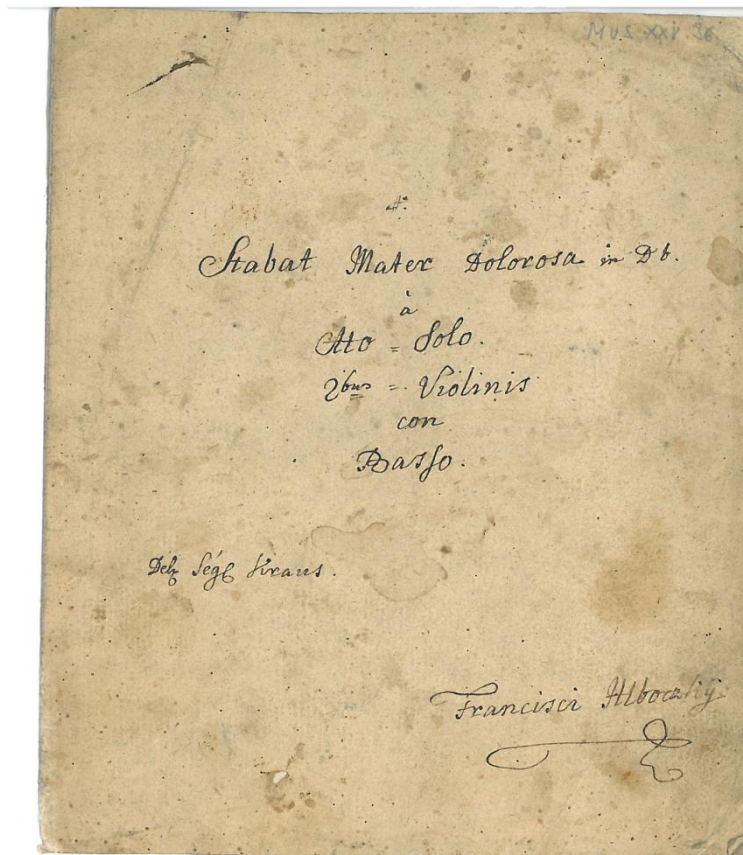 MUS XXV 36
4.
Stabat Mater Dolorosa in D b.
à
Alto = Solo.
2bus = Violinis
con
Basso.
Del Sig Kraus.
Francisci Hlboczkÿ